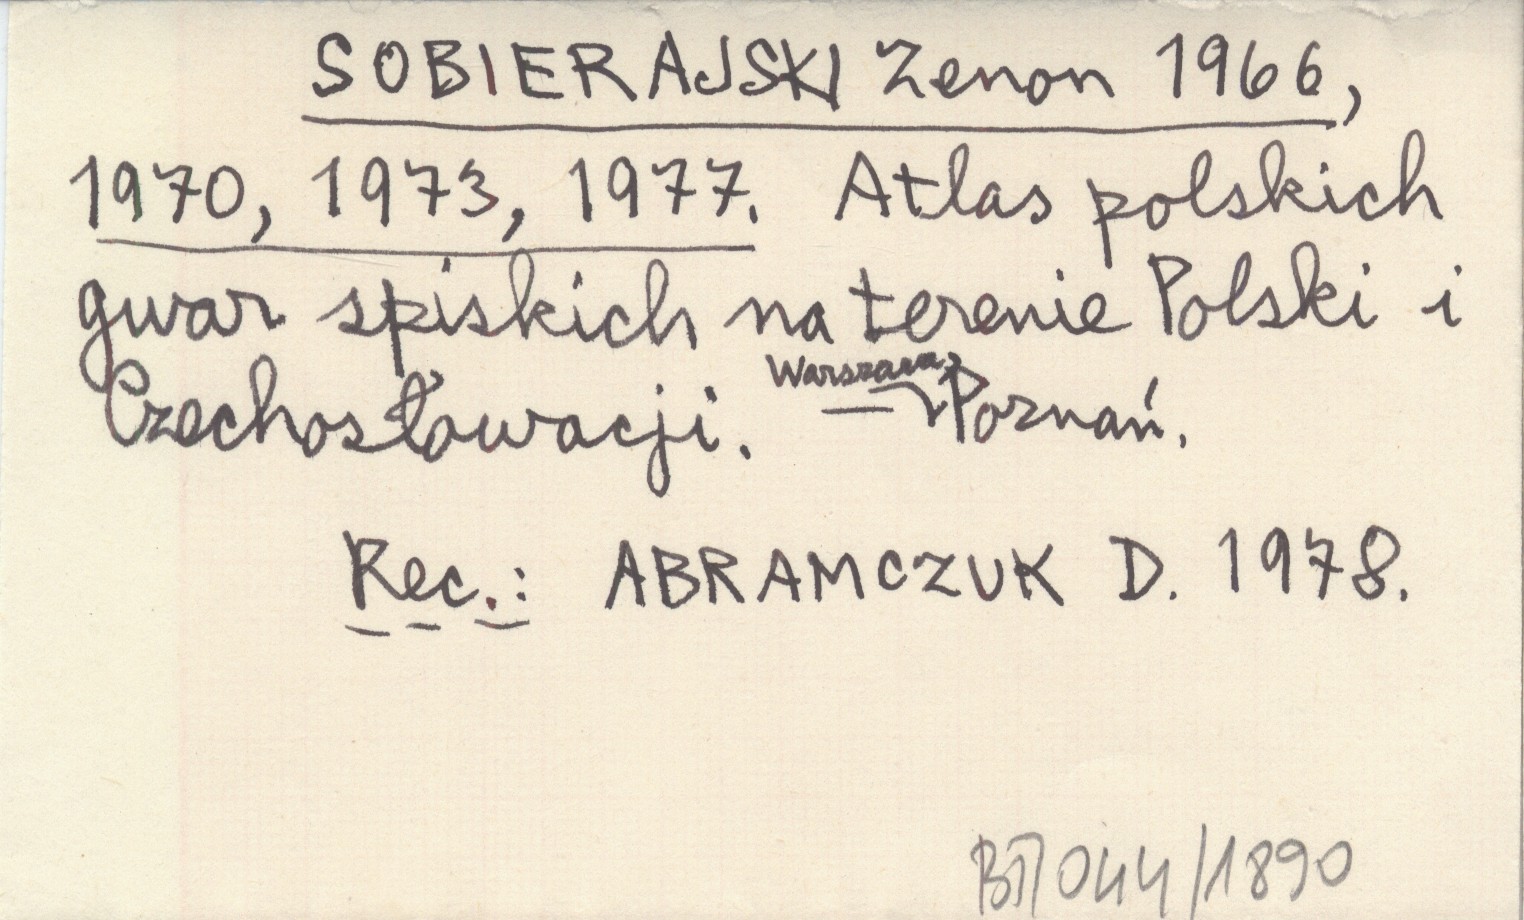 SOBIERAJSKI Zenon 1966,
1970, 1973, 1977. Atlas polskich
gwar spiskich na terenie Polski i
Czechosłowacji. Warszawa, Poznań.
Rec.: ABRAMCZUK D. 1978.
044/1890